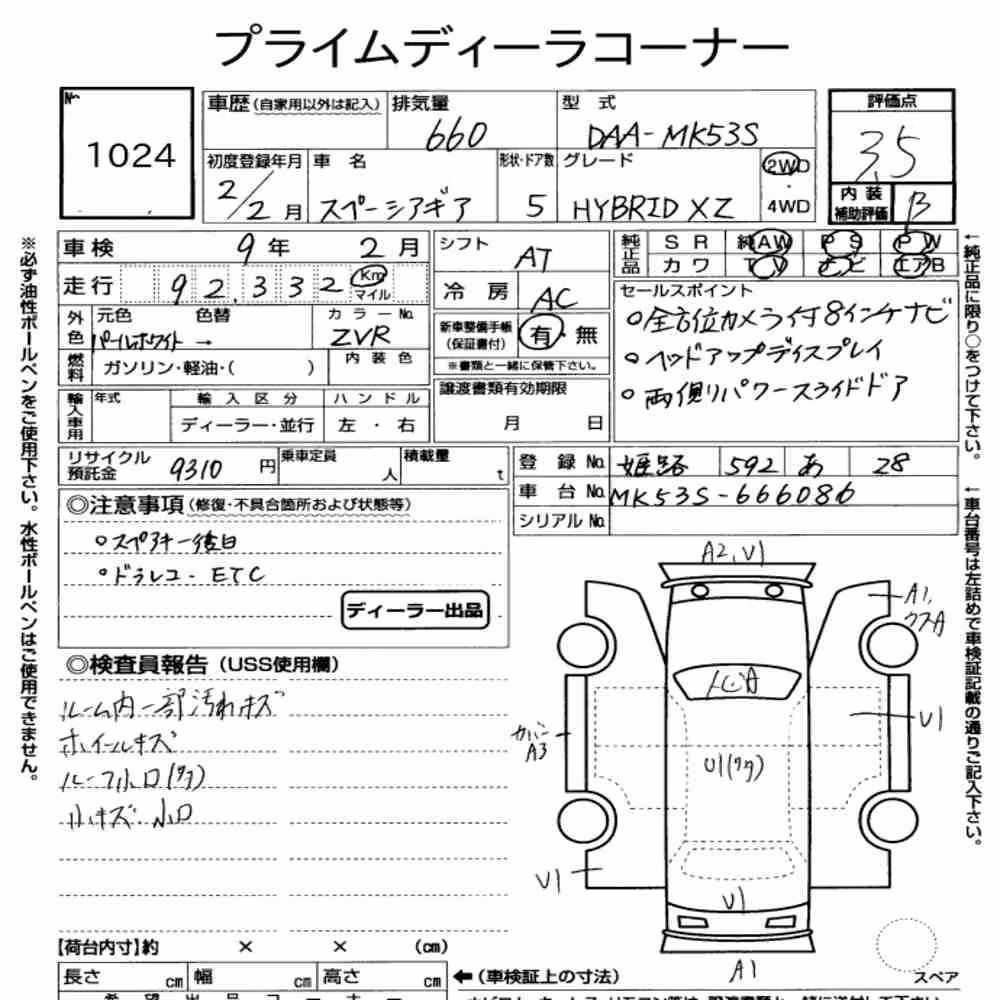 プライムディーラーコーナー
No. 1024
車歴(自家用以外は記入) 排気量 660 型式 DAA-MK53S 評価点 3.5
初度登録年月 2/2月 車名 スペーシアギア 形状・ドア数 5 グレード HYBRID XZ 2WD・4WD 内装補助評価 B
車検 9年 2月 シフト AT 純正品 SR 純AW PS PW
カワ TV ナビ エアB
走行 92,332 Km マイル 冷房 AC
セールスポイント
外色 元色 パールホワイト → 色替 カラーNo. ZVR 新車整備手帳(保証書付) 有・無
※書類と一緒に保管下さい。
○全方位カメラ付8インチナビ
○ヘッドアップディスプレイ
○両側パワースライドドア
燃料 ガソリン・軽油・( ) 内装色
譲渡書類有効期限 月 日
輸入車用 年式 輸入区分 ディーラー・並行 ハンドル 左・右
リサイクル預託金 9310円 乗車定員 人 積載量 t
登録No. 姫路 592 あ 28
車台No. MK53S-666086
シリアルNo.
◎注意事項(修復・不具合箇所および状態等)
○スペアキー後日
○ドラレコ・ETC
ディーラー出品
◎検査員報告(USS使用欄)
ルーム内一部汚れキズ
ホイールキズ
ルーフ小凹(タタ)
小キズ 小凹
A2, U1
A1,
クスA
U1
カバー
A3
U1(タタ)
U1
U1
A1
スペア
【荷台内寸】約 × × (cm)
長さ cm 幅 cm 高さ cm ←(車検証上の寸法)
※必ず油性ボールペンをご使用下さい。水性ボールペンはご使用できません。
←純正品に限り○をつけて下さい。
←車台番号は左詰めで車検証記載の通りご記入下さい。